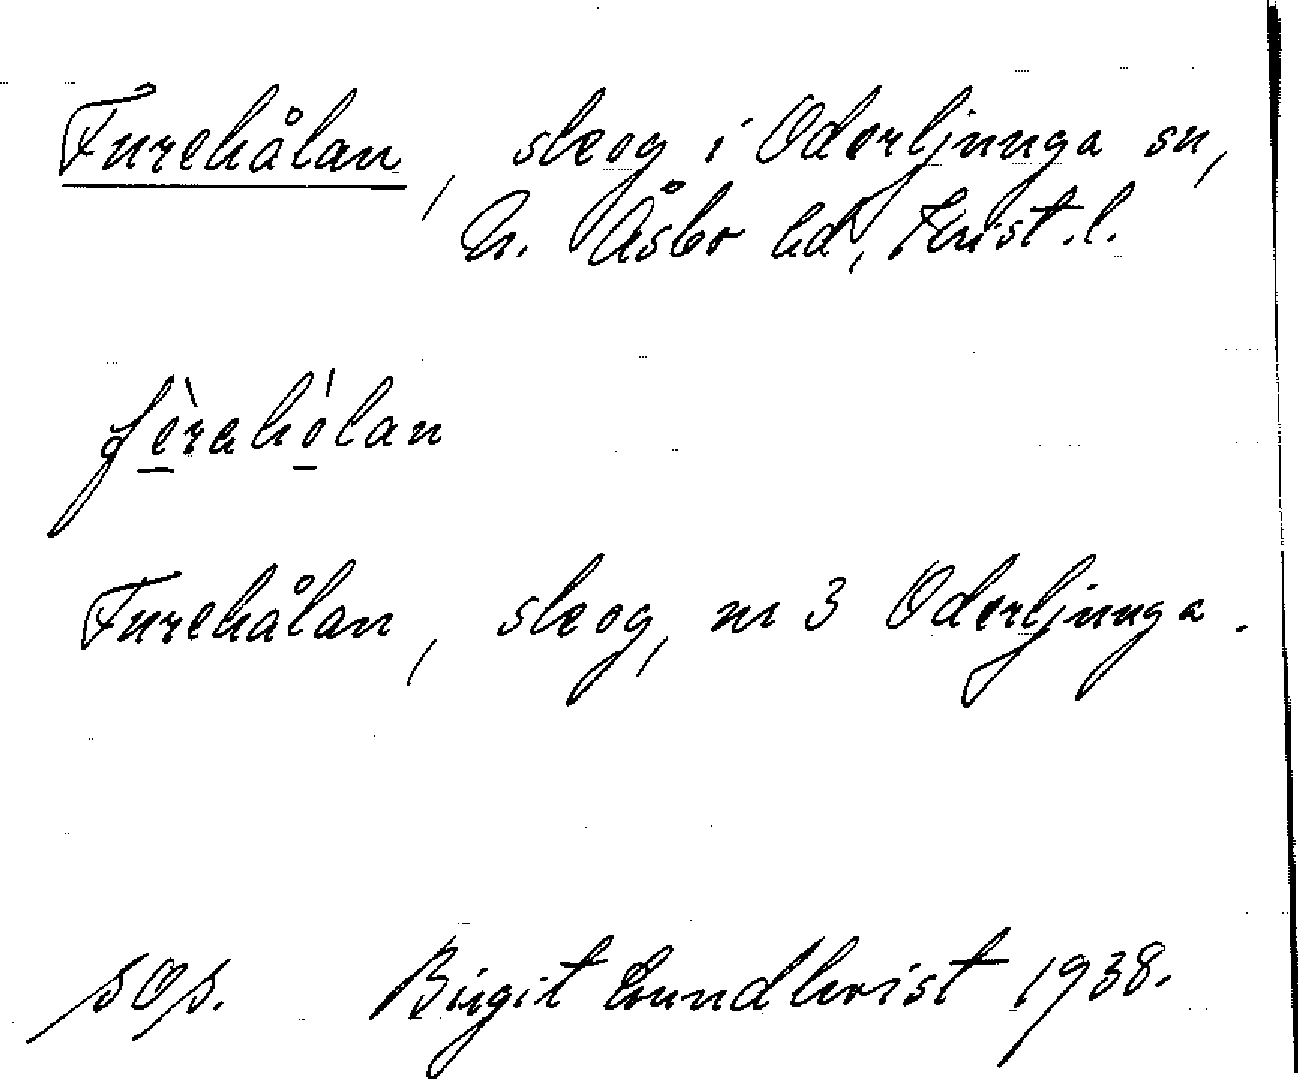 Furehålan, skog i Oderljunga sn,
N. Åsbo hd, Krist. l.
fèrahólan
Furehålan, skog, nr 3 Oderljunga.
sOs. Birgit Lundkvist 1938.